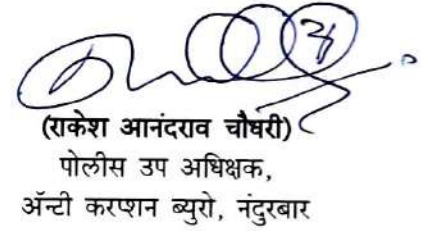 (राकेश आनंदराव चौधरी)
पोलीस उप अधिक्षक,
ॲन्टी करप्शन ब्युरो, नंदुरबार